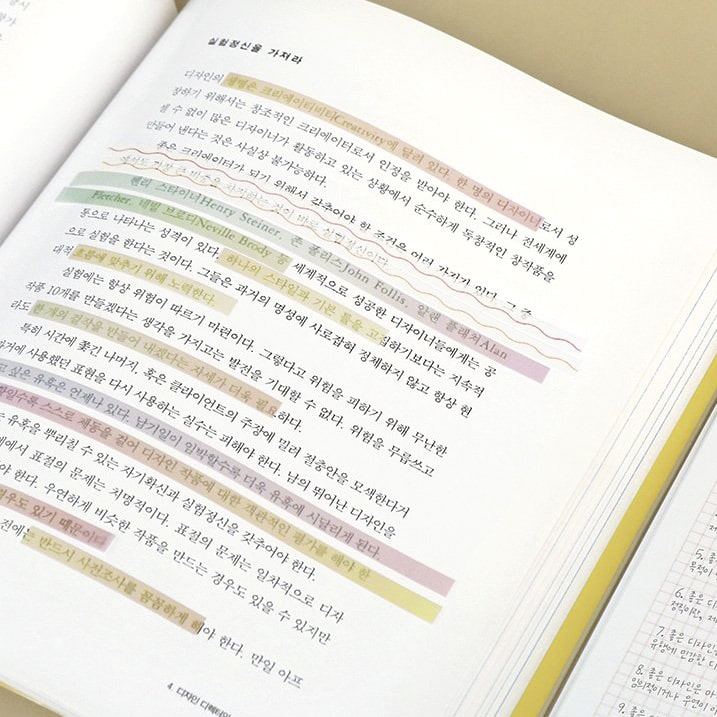 실험정신을 가져라
디자인의 생명은 크리에이티비티Creativity에 달려 있다. 한 명의 디자이너로서 성
장하기 위해서는 창조적인 크리에이터로서 인정을 받아야 한다. 그러나 전세계에
셀 수 없이 많은 디자이너가 활동하고 있는 상황에서 순수하게 독창적인 창작품을
만들어 낸다는 것은 사실상 불가능하다.
좋은 크리에이터가 되기 위해서 갖추어야 할 조건은 여러 가지가 있다. 그 중
에서도 가장 큰 비중을 차지하는 것이 바로 실험정신이다.
헨리 스타이너Henry Steiner, 존 폴리스John Follis, 알랜 플래처Alan
Fletcher, 네빌 브로디Neville Brody 등 세계적으로 성공한 디자이너들에게는 공
통으로 나타나는 성격이 있다. 하나의 스타일과 기본 틀을 고집하기보다는 지속적
으로 실험을 한다는 것이다. 그들은 과거의 명성에 사로잡혀 정체하지 않고 항상 현
대적 흐름에 맞추기 위해 노력한다.
실험에는 항상 위험이 따르기 마련이다. 그렇다고 위험을 피하기 위해 무난한
작품 10개를 만들겠다는 생각을 가지고는 발전을 기대할 수 없다. 위험을 무릅쓰고
라도 한 개의 걸작을 만들어 내겠다는 자세가 더욱 필요하다.
특히 시간에 쫓긴 나머지, 혹은 클라이언트의 주장에 밀려 절충안을 모색한다거
과거에 사용했던 표현을 다시 사용하는 실수는 피해야 한다. 남의 뛰어난 디자인을
싶은 유혹은 언제나 있다. 납기일이 임박할수록 더욱 유혹에 시달리게 된다.
스스로 제동을 걸어 디자인 작품에 대한 객관적인 평가를 해야 한
유혹을 뿌리칠 수 있는 자기확신과 실험정신을 갖추어야 한다.
에서 표절의 문제는 치명적이다. 표절의 문제는 일차적으로 디자
야 한다. 우연하게 비슷한 작품을 만드는 경우도 있을 수 있지만
경우도 있기 때문이다
전에는 반드시 사전조사를 꼼꼼하게 해야 한다. 만일 아프
4. 디자인 디렉터
5. 좋
목적이
6. 좋은 디
정직이란, 제
7. 좋은 디자인
유행에 민감한 디
8. 좋은 디자인은 마
임의적이거나 우연이
9. 좋은